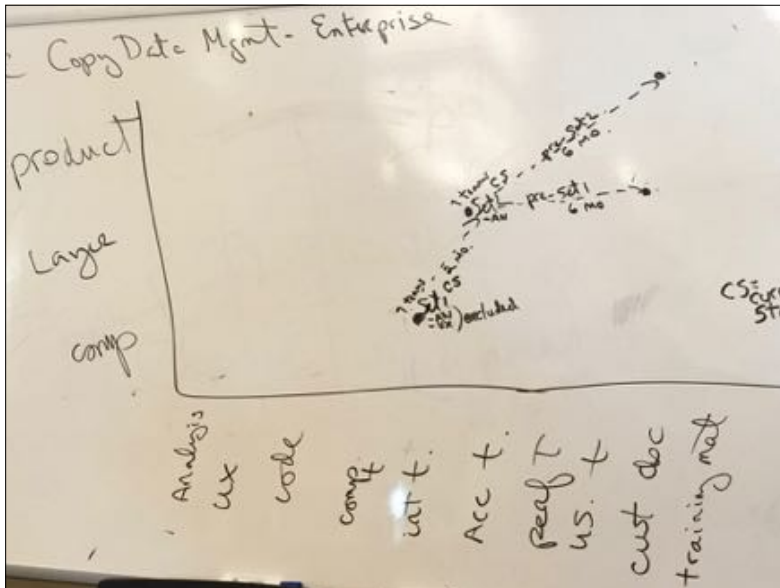 Copy Data Mgmt - Enterprise
product
Layer
comp
7 teams CS
Set 1
-AN
2 mo.
pre-Set 2
6 MO
pre-Set 1
6 MO
7 teams CS
Set 1
-AN
-UX ) excluded
CS=
Analysis
UX
code
comp. t
int t.
Acc t.
perf T
us. t
cust doc
training mat